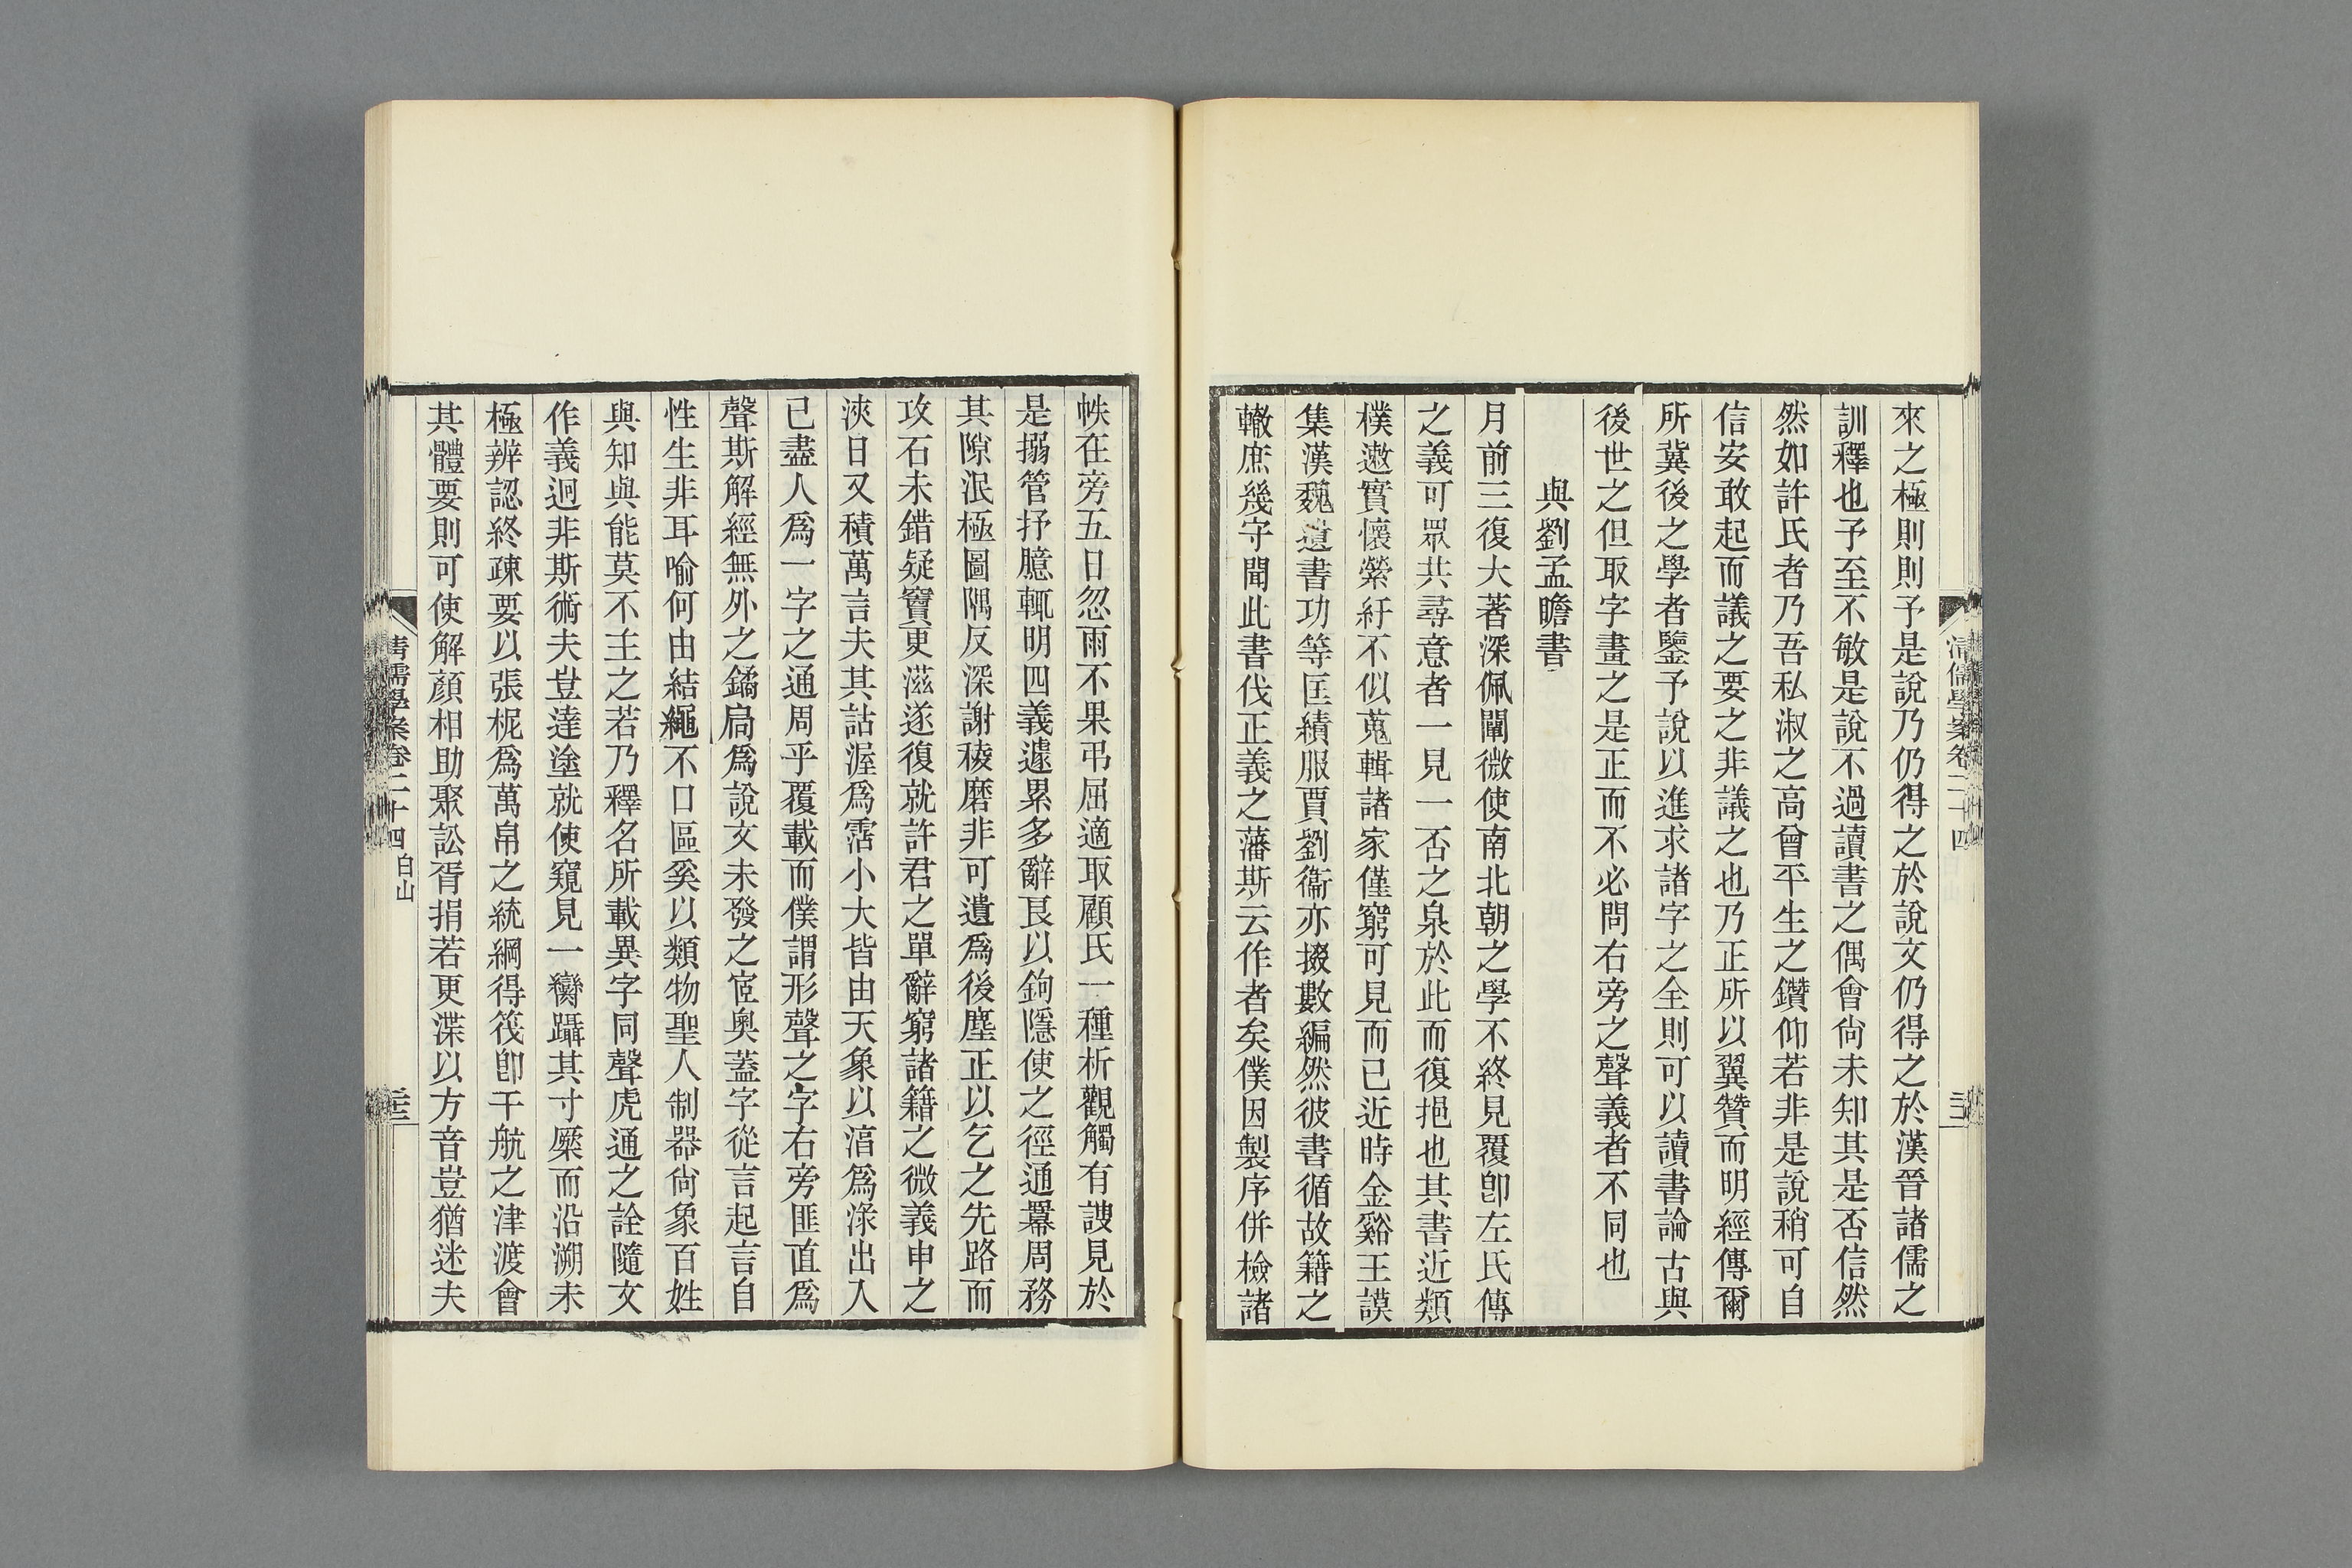 來之極則則予是說乃仍得之於說文仍得之於漢晉諸儒之
訓釋也予至不敏是說不過讀書之偶會尙未知其是否信然
然如許氏者乃吾私淑之高曾平生之鑽仰若非是說稍可自
信安敢起而議之要之非議之也乃正所以翼贊而明經傳爾
所冀後之學者鑒予說以進求諸字之全則可以讀書論古與
後世之但取字畫之是正而不必問右旁之聲義者不同也
與劉孟瞻書
月前三復大著深佩闡微使南北朝之學不終見覆卽左氏傳
之義可眾共尋意者一見一否之泉於此而復挹也其書近類
樸遬實懷縈紆不似蒐輯諸家僅窮可見而已近時金谿王謨
集漢魏遺書功等匡績服賈劉衞亦掇數編然彼書循故籍之
轍庶幾守聞此書伐正義之藩斯云作者矣僕因製序併檢諸
帙在旁五日忽雨不果弔屈適取顧氏一種析觀觸有謏見於
是搦管抒臆輒明四義遽累多辭艮以鉤隱使之徑通羃周務
其隙泯極圖隅反深謝稜磨非可遺爲後塵正以乞之先路而
攻石未錯疑竇更滋遂復就許君之單辭窮諸籍之微義申之
浹日又積萬言夫其詁渥爲霑小大皆由天象以滀爲淥出入
已盡人爲一字之通周乎覆載而僕謂形聲之字右旁匪直爲
聲斯解經無外之鐍扃爲說文未發之宧奧蓋字從言起言自
性生非耳喻何由結繩不口區奚以類物聖人制器尙象百姓
與知與能莫不主之若乃釋名所載異字同聲虎通之詮隨文
作義迥非斯術夫豈達塗就使窺見一臠躡其寸縻而沿溯未
極辨認終疎要以張柅爲萬帛之統綱得筏卽千航之津渡會
其體要則可使解顏相助聚訟胥捐若更渫以方音豈猶迷夫
清儒學案卷二十四 白山